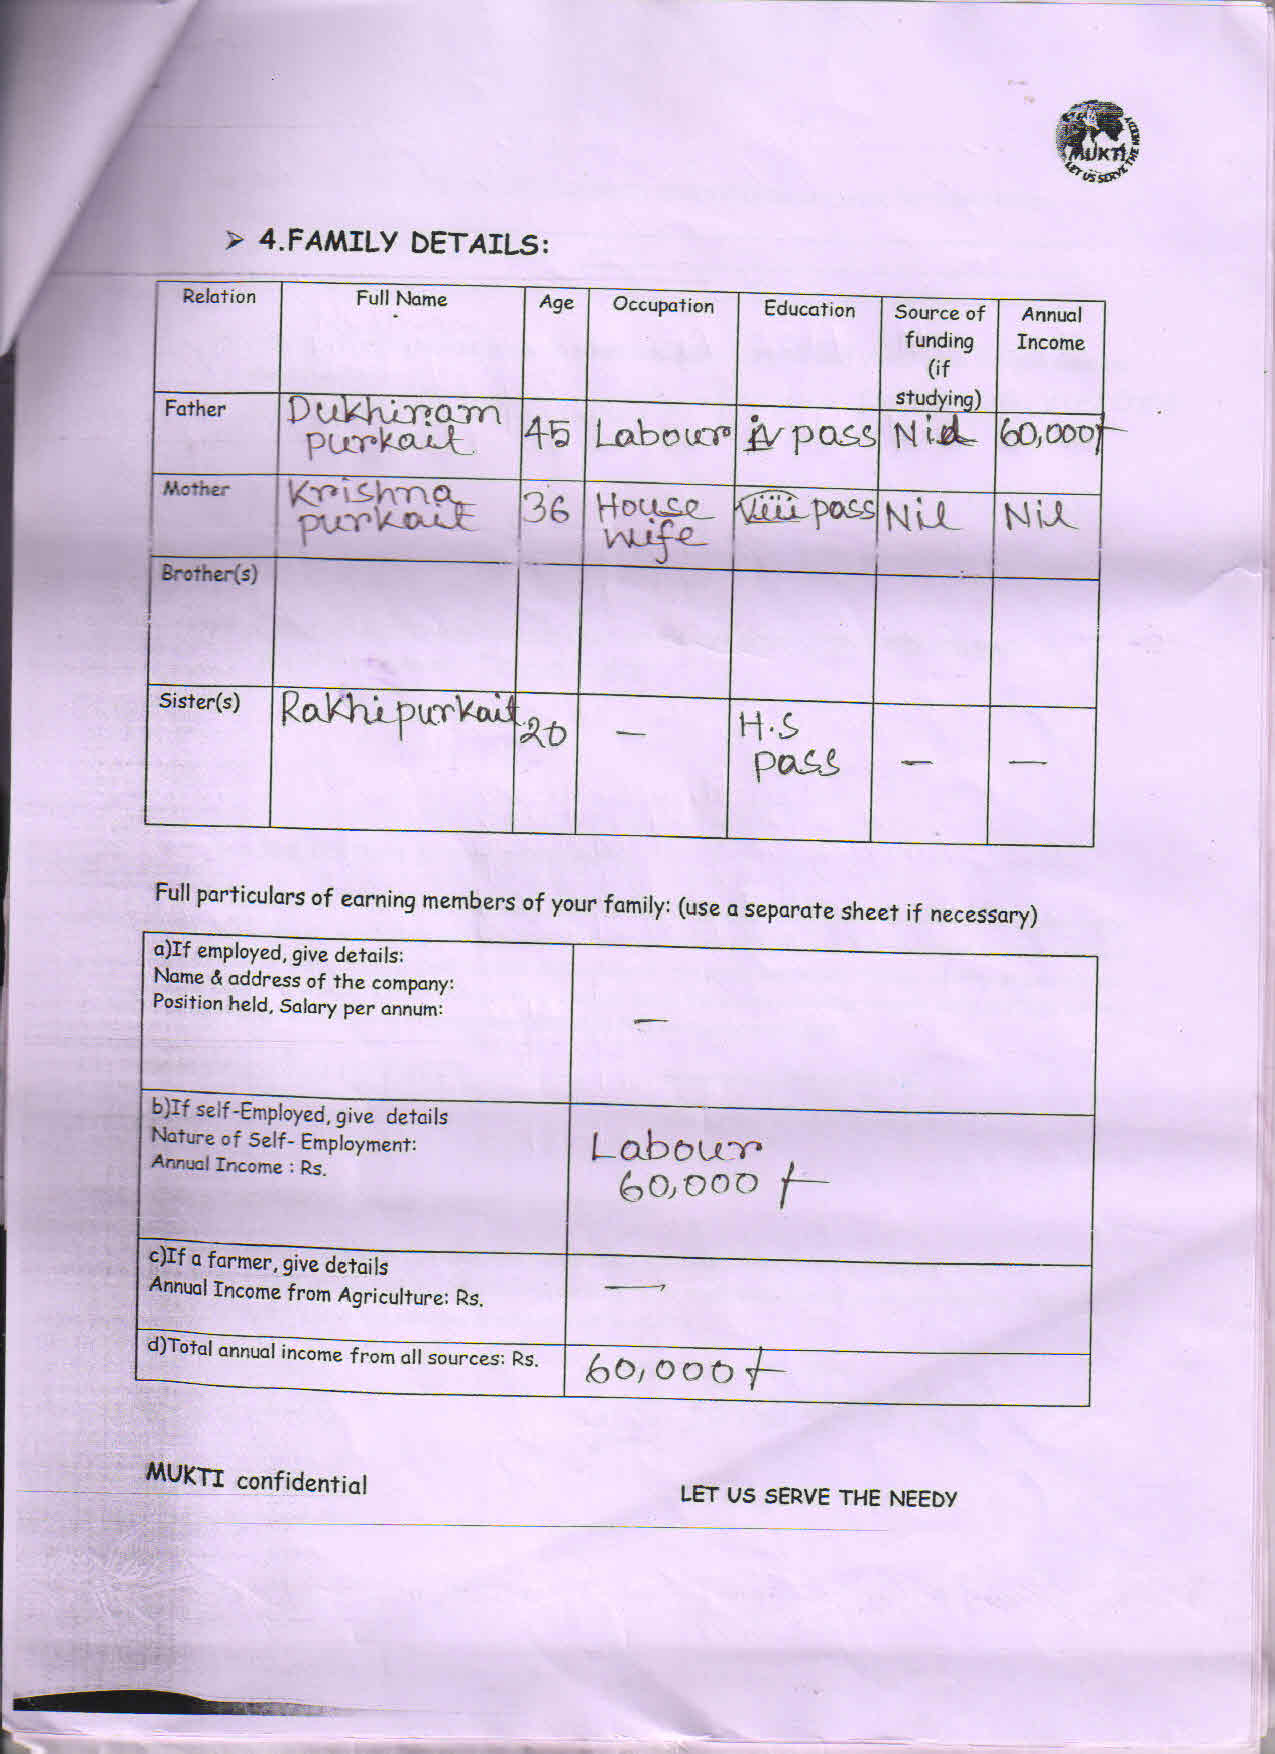 MUKTI
LET US SERVE THE NEEDY
➢ 4.FAMILY DETAILS:
Relation Full Name Age Occupation Education Source of funding (if studying) Annual Income
Father Dukhiram purkait 45 Labour iv pass Nil 60,000/-
Mother Krishna purkait 36 House wife viiii pass Nil Nil
Brother(s)
Sister(s) Rakhi purkait 20 — H.S pass — —
Full particulars of earning members of your family: (use a separate sheet if necessary)
a)If employed, give details:
Name & address of the company:
Position held, Salary per annum: —
b)If self-Employed, give details
Nature of Self- Employment: Labour
Annual Income : Rs. 60,000/-
c)If a farmer, give details
Annual Income from Agriculture: Rs. —
d)Total annual income from all sources: Rs. 60,000/-
MUKTI confidential LET US SERVE THE NEEDY